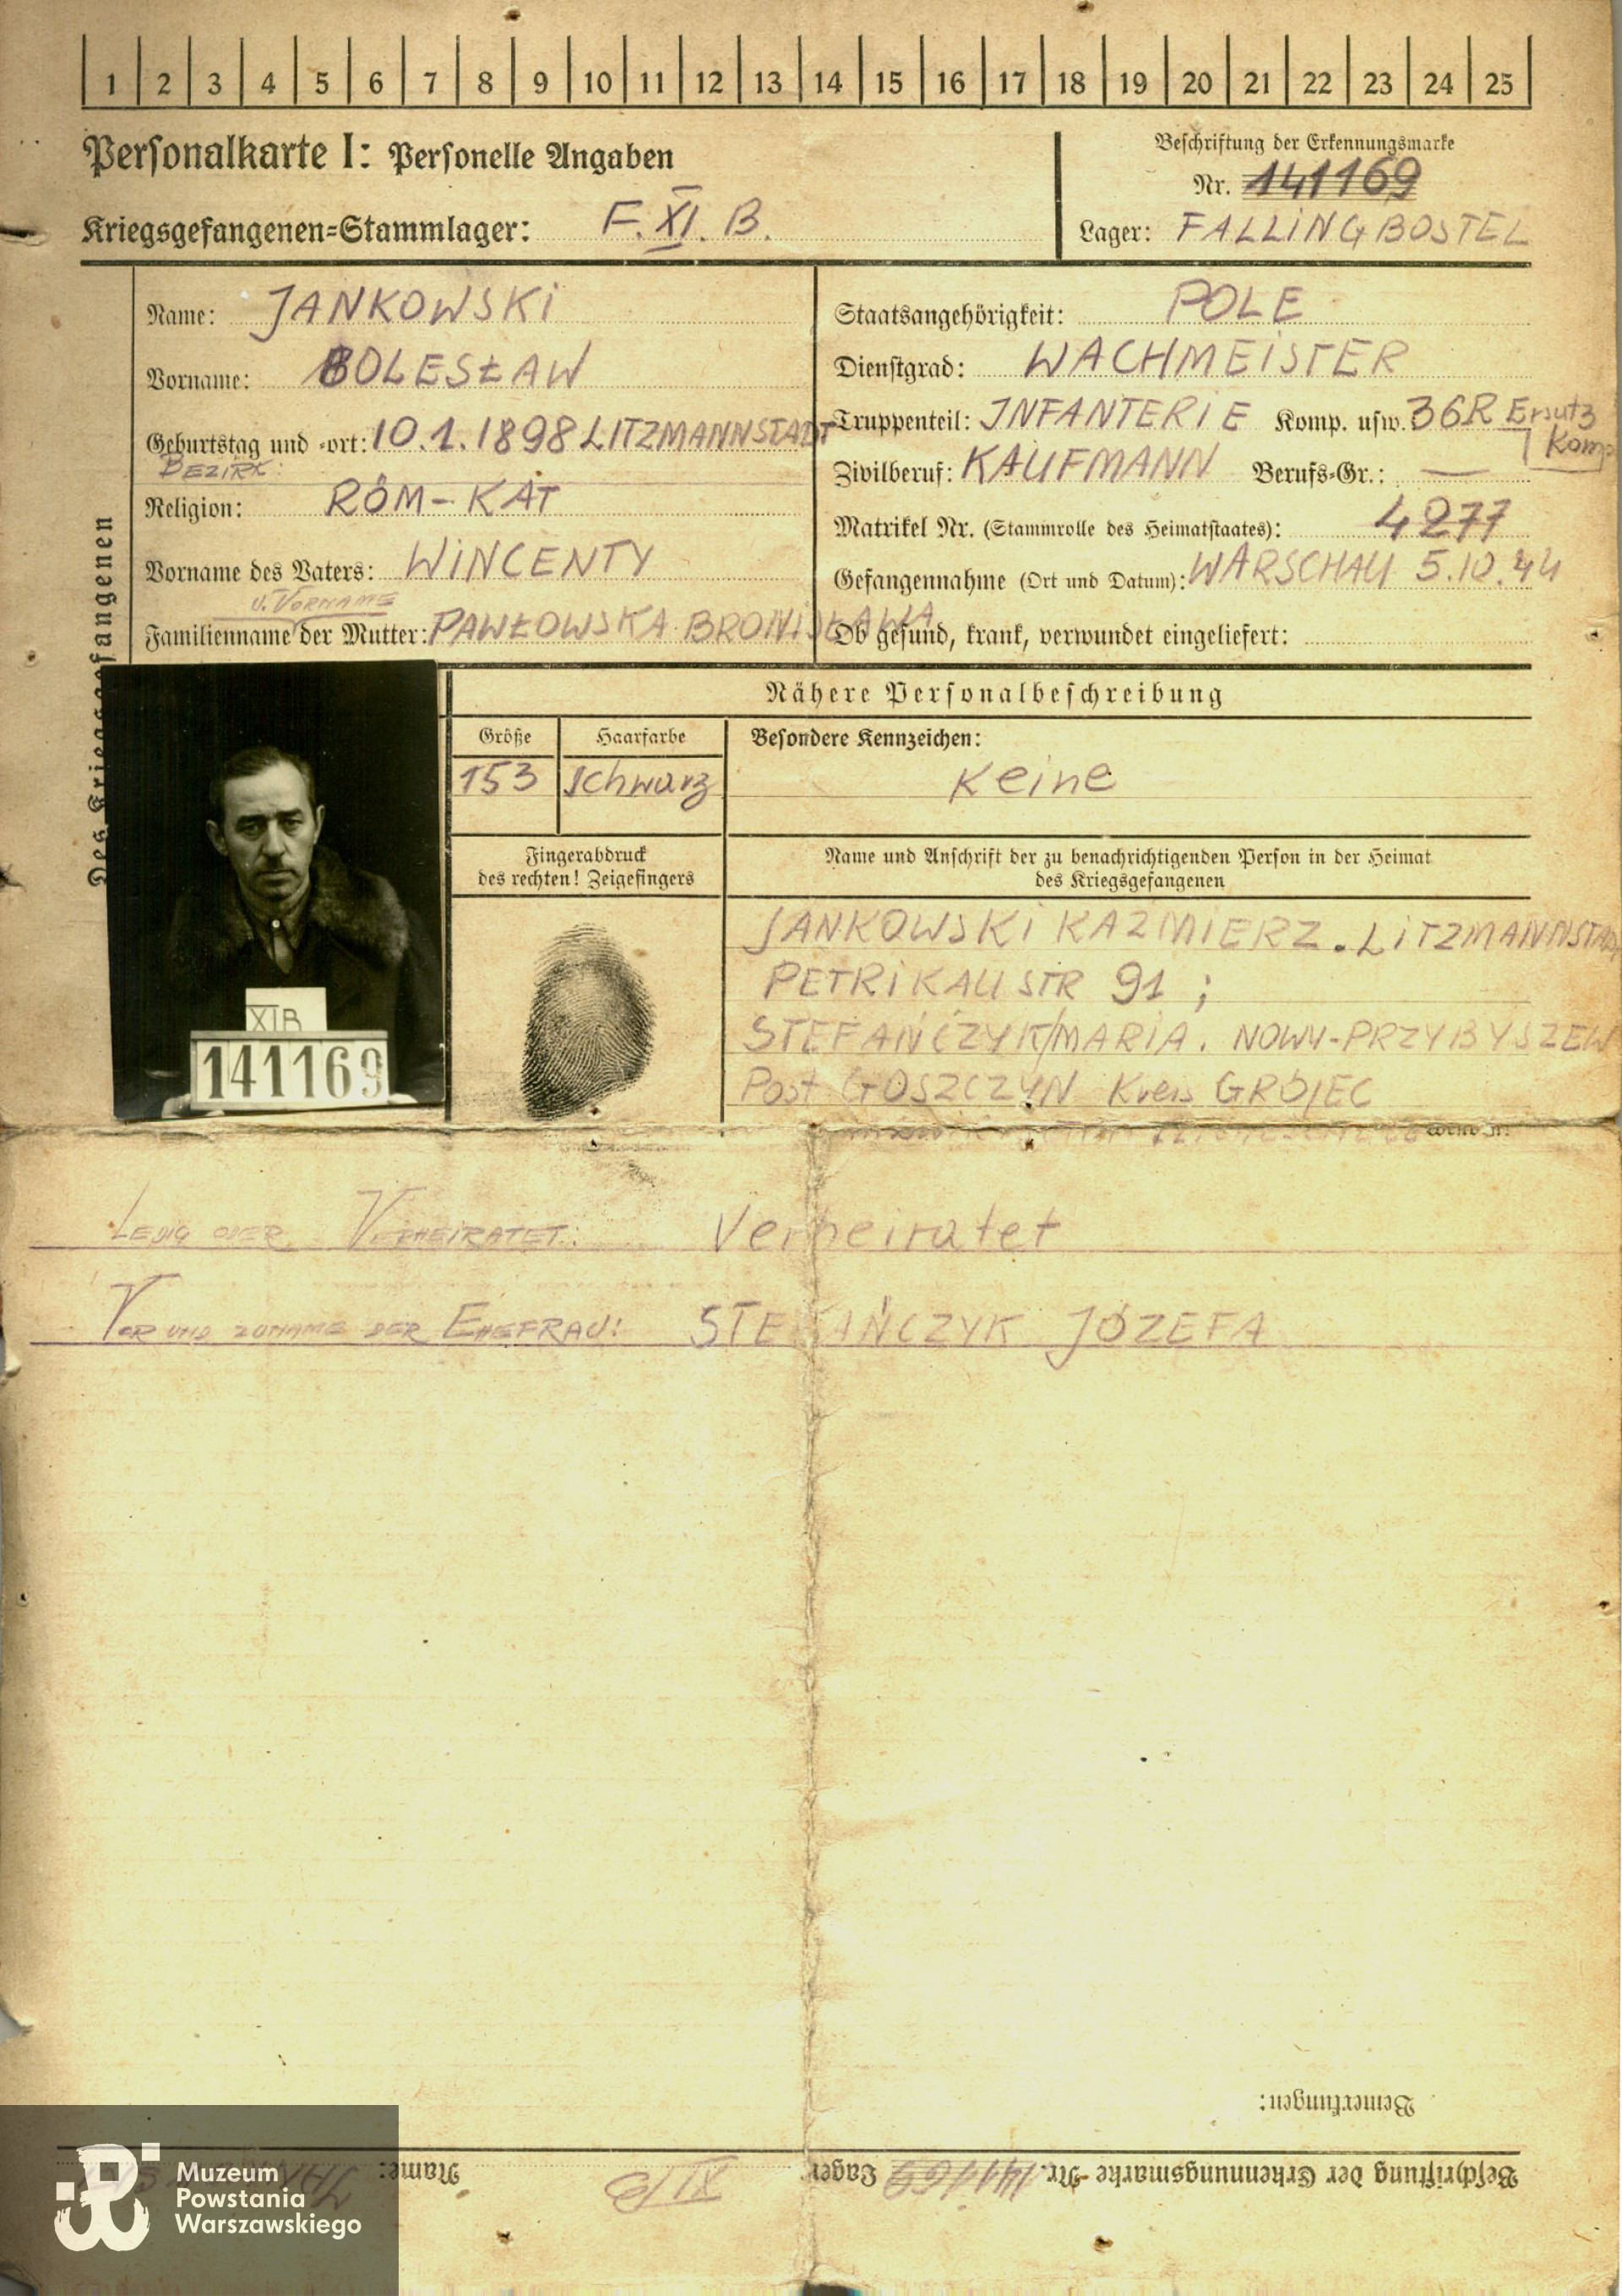 1 2 3 4 5 6 7 8 9 10 11 12 13 14 15 16 17 18 19 20 21 22 23 24 25
Personalkarte I: Personelle Angaben
Beschriftung der Erkennungsmarke
Nr. 141169
Kriegsgefangenen=Stammlager: F. XI. B.
Lager: FALLINGBOSTEL
Des Kriegsgefangenen
Name: JANKOWSKI
Vorname: BOLESŁAW
Geburtstag und =ort: 10.1.1898 LITZMANNSTADT
BEZIRK:
Religion: RÖM-KAT
Vorname des Vaters: WINCENTY
U. VORNAME
Familienname der Mutter: PAWŁOWSKA BRONISŁAWA
Staatsangehörigkeit: POLE
Dienstgrad: WACHMEISTER
Truppenteil: INFANTERIE Komp. usw. 36R Ersatz
Komp
Zivilberuf: KAUFMANN Berufs=Gr.: —
Matrikel Nr. (Stammrolle des Heimatstaates): 4277
Gefangennahme (Ort und Datum): WARSCHAU 5.10.44
Ob gesund, krank, verwundet eingeliefert:
Nähere Personalbeschreibung
Größe Haarfarbe Besondere Kennzeichen:
153 schwarz Keine
Fingerabdruck
des rechten! Zeigefingers
Name und Anschrift der zu benachrichtigenden Person in der Heimat
des Kriegsgefangenen
JANKOWSKI KAZMIERZ. LITZMANNSTADT
PETRIKAUSTR 91 ;
STEFAŃCZYK MARIA. NOWY-PRZYBYSZEW
Post GOSZCZYN Kreis GRÓJEC
XIB
141169
LEDIG ODER VERHEIRATET: Verheiratet
VOR UND ZUNAME DER EHEFRAU: STEFAŃCZYK JÓZEFA
Bemerkungen:
Beschriftung der Erkennungsmarke Nr. 141169 Lager XI B
Name:
Muzeum
Powstania
Warszawskiego